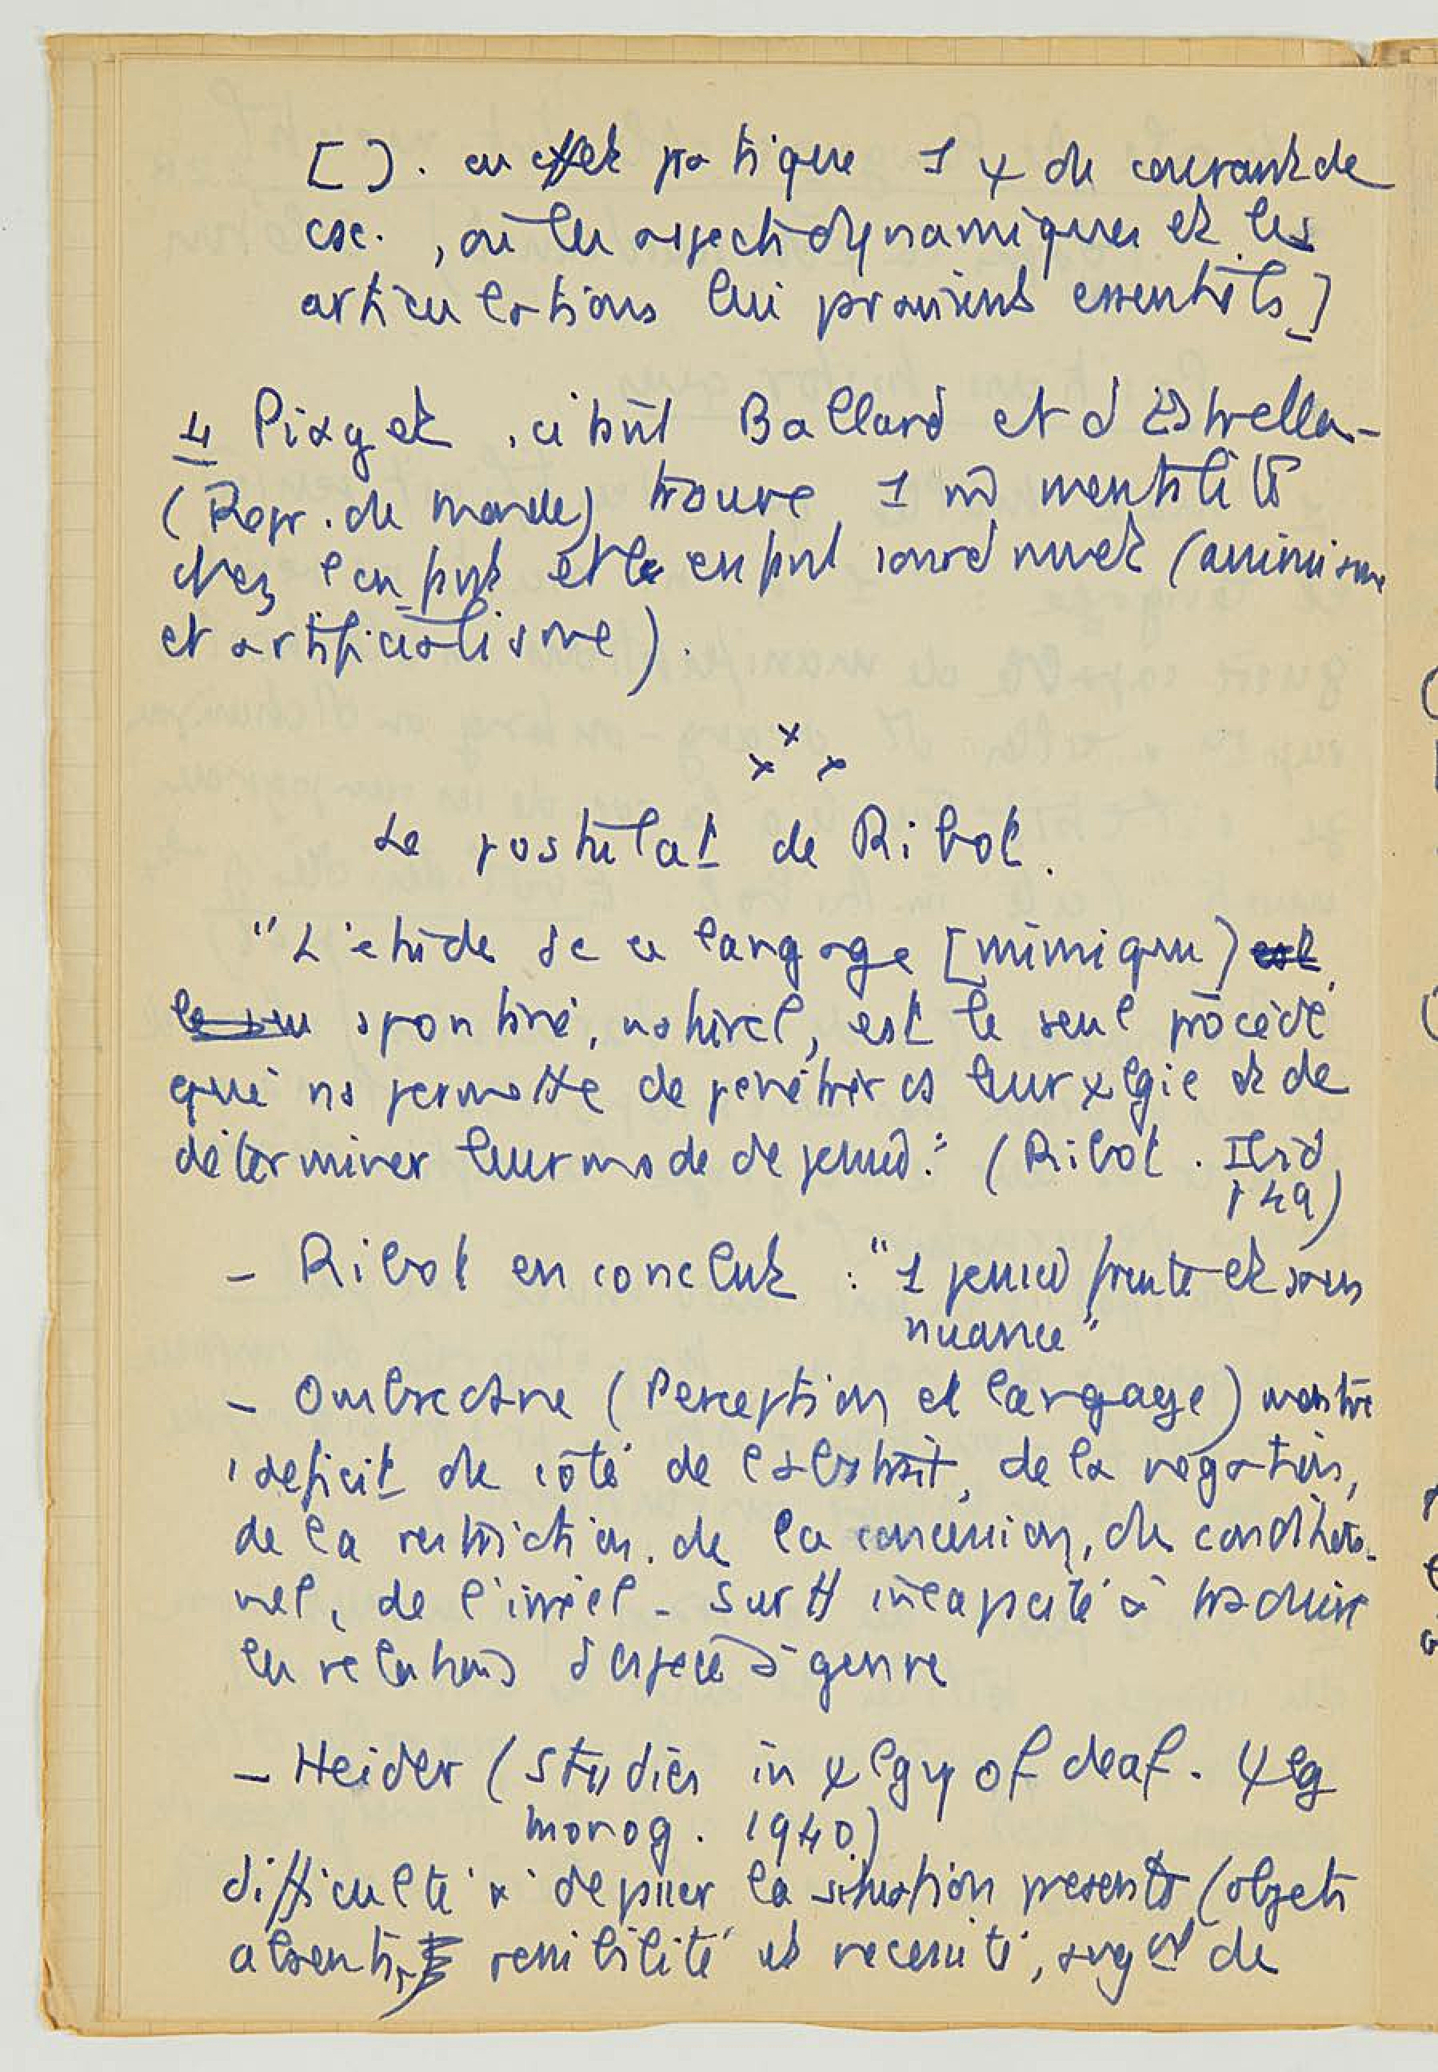 [ ] . en effet pratique 1 χ du courant de
csc. , où les aspects dynamiques et les
articulations lui essentiels]
4 Piaget , citant Ballard et d'Estrella -
(Repr. du monde) trouve 1 m̄ mentalité
chez l'enfant et le enfant sourd muet (animisme
et artificialisme).
x x x
Le postulat de Ribot.
"L'étude de ce langage [mimique) est
le seu spontané, naturel, est le seul procédé
qui ns permette de pénétrer ds leur χlgie et de
déterminer leur mode de pensée." (Ribot . Ibid
p 49)
- Ribot en conclut : "1 pensée frute et sans
nuance"
- Ombredane (Perception et langage) montre
1 deficit du côté de l'abstrait, de la négation,
de la restriction, de la concession, du condition-
nel, de l'irréel - surtt incapacité à traduire
les relations d'espèce à genre
- Heider (Studies in χlgy of deaf. χlg
monog. 1940)
difficulté à dépasser la situation présente (objets
absents, possibilité et nécessité, de